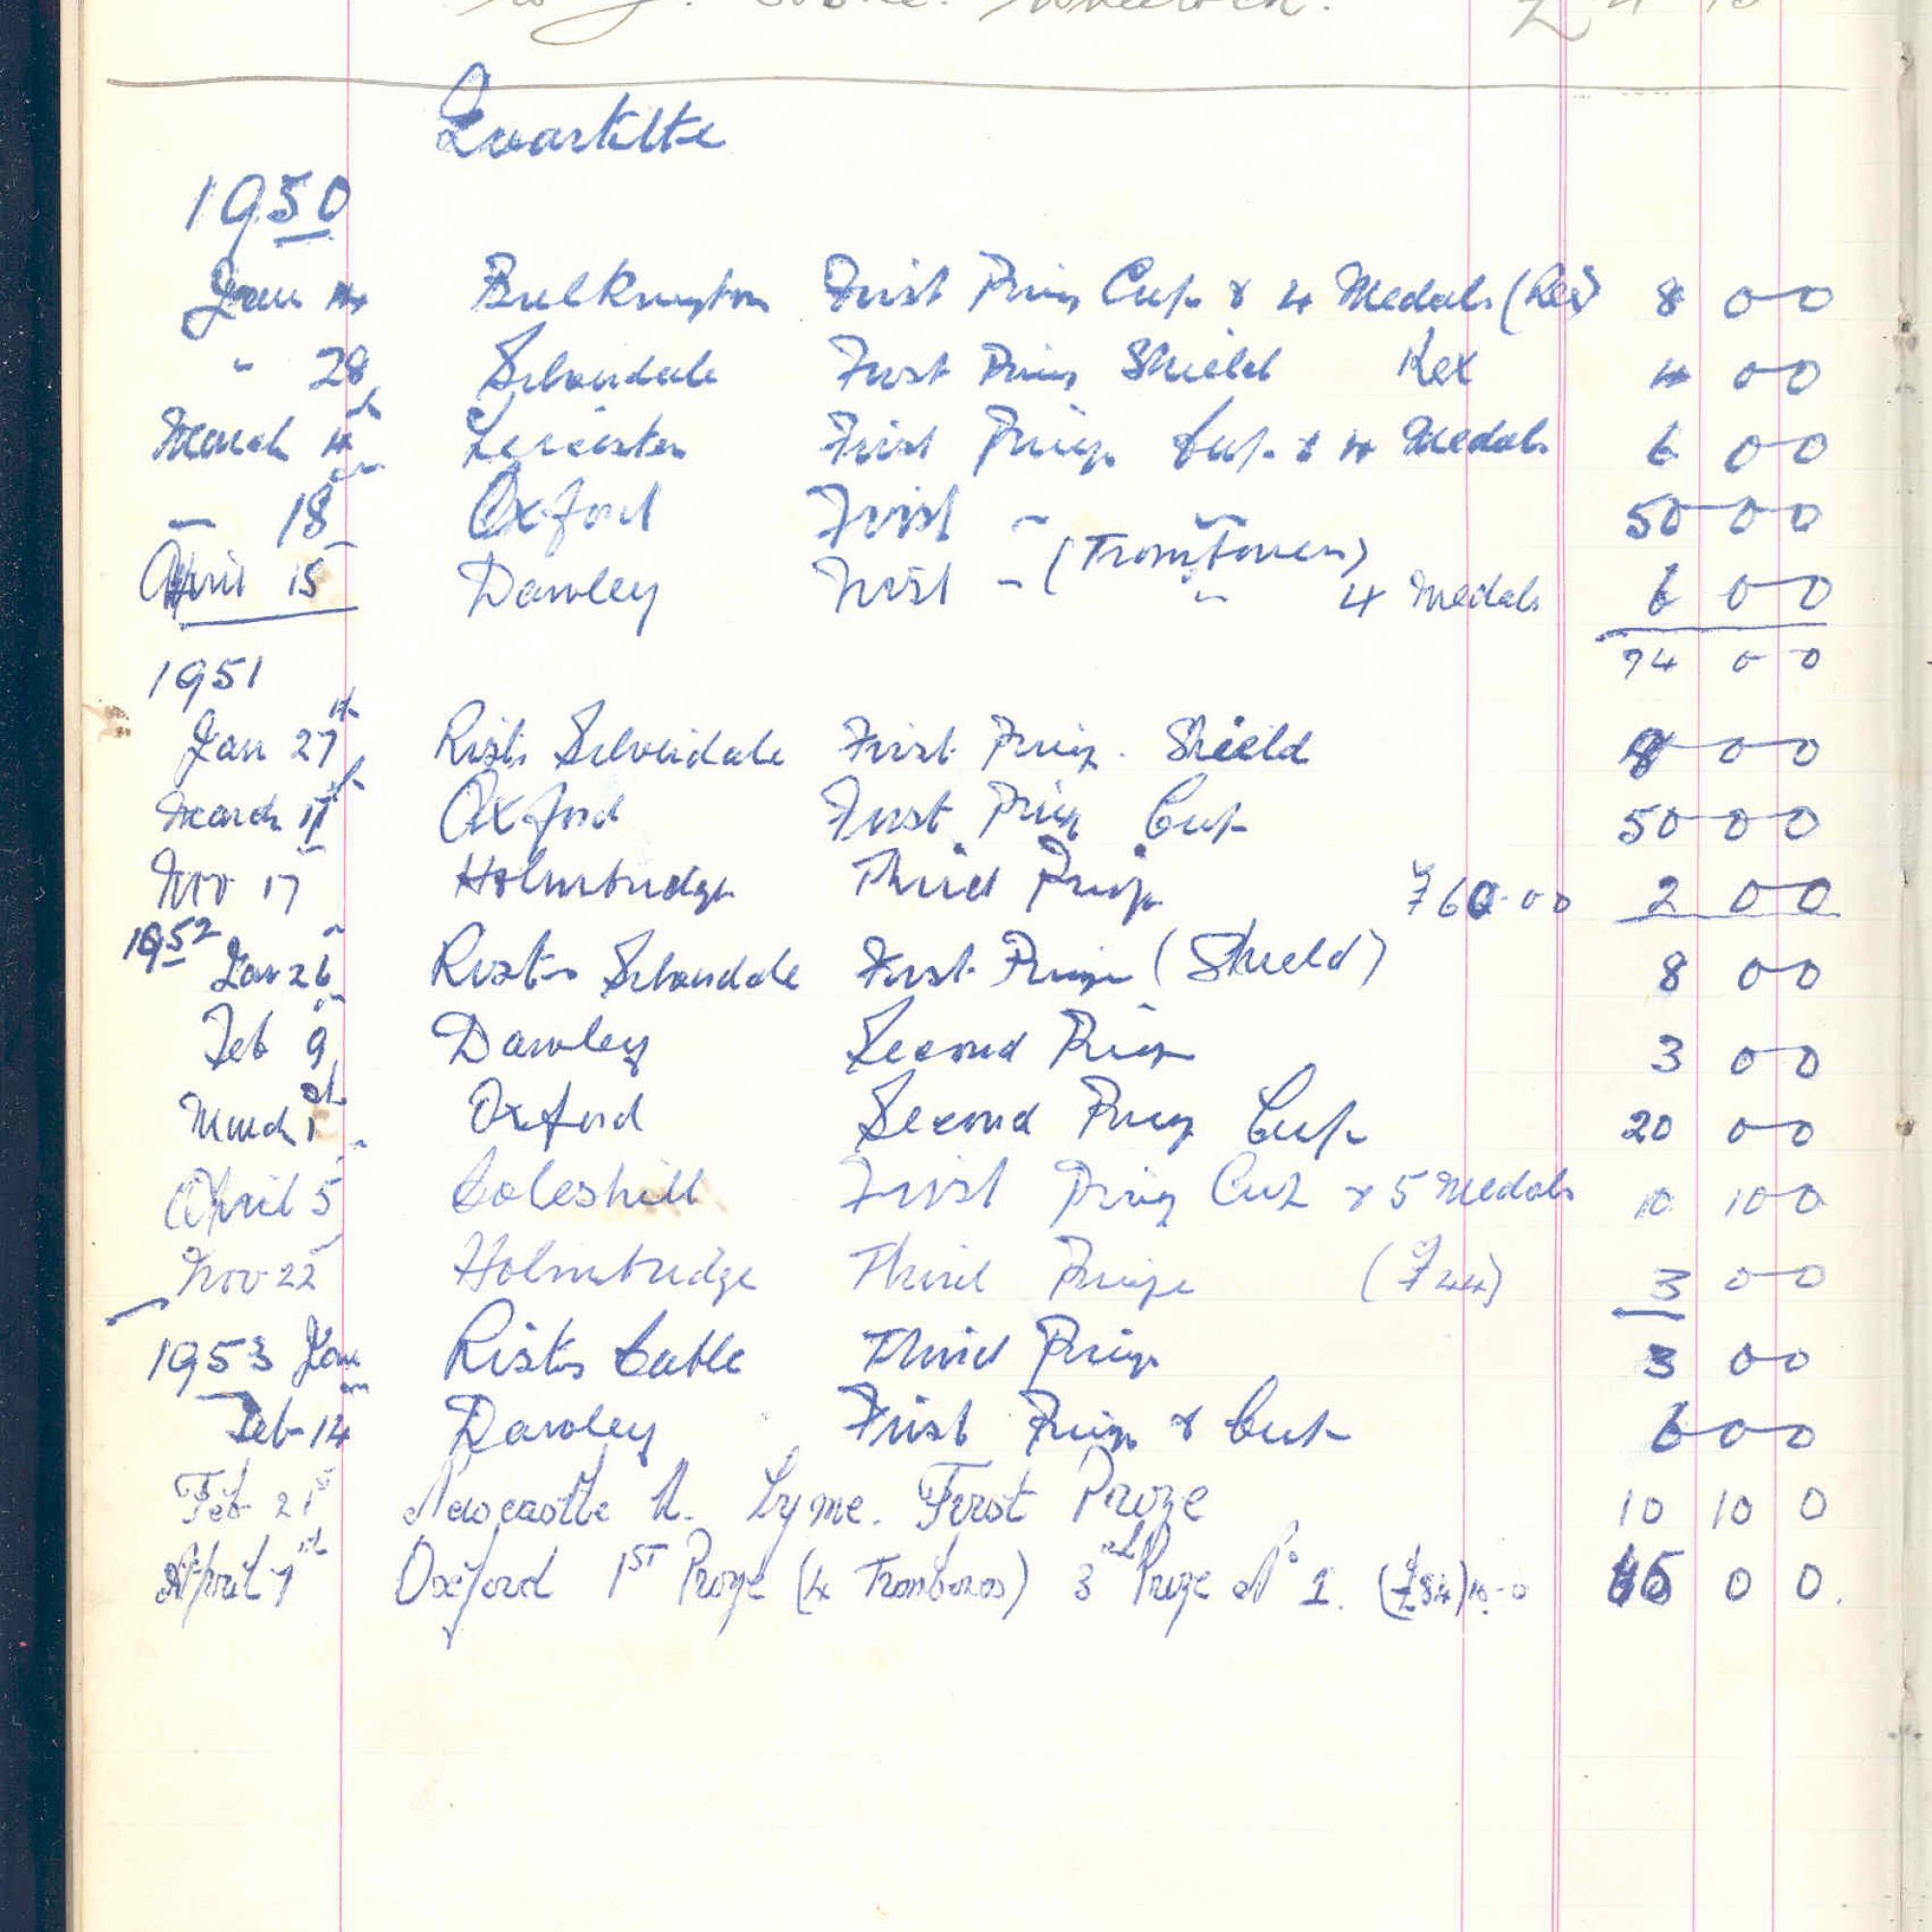 Quartette
1950
Jan 14 Bulkington First Prize Cup & 4 Medals (Rex) 8 0 0
" 28 Silverdale First Prize Shield Rex 4 0 0
March 4th Leicester First Prize Cup & 4 Medals 6 0 0
" 18th Oxford First " " 50 0 0
(Trombones)
April 15 Dawley First " " 4 Medals 6 0 0
74 0 0
1951
Jan 27th Rists Silverdale First Prize. Shield 8 0 0
March 11th Oxford First Prize Cup 50 0 0
Nov 17 Holmbridge Third Prize £60-0-0 2 0 0
1952 Jan 26 Rists Silverdale First Prize (Shield) 8 0 0
Feb 9 Dawley Second Prize 3 0 0
March 1st Oxford Second Prize Cup 20 0 0
April 5 Coleshill First Prize Cup & 5 Medals 10 10 0
Nov 22 Holmbridge Third Prize (£44) 3 0 0
1953 Jan Rists Cable Third Prize 3 0 0
Feb 14 Dawley First Prize & Cup 6 0 0
Feb 21st Newcastle U. Lyme. First Prize 10 10 0
April Oxford 1ST Prize (4 Trombones) 3rd Prize No 1. (£84) 10-0 65 0 0.